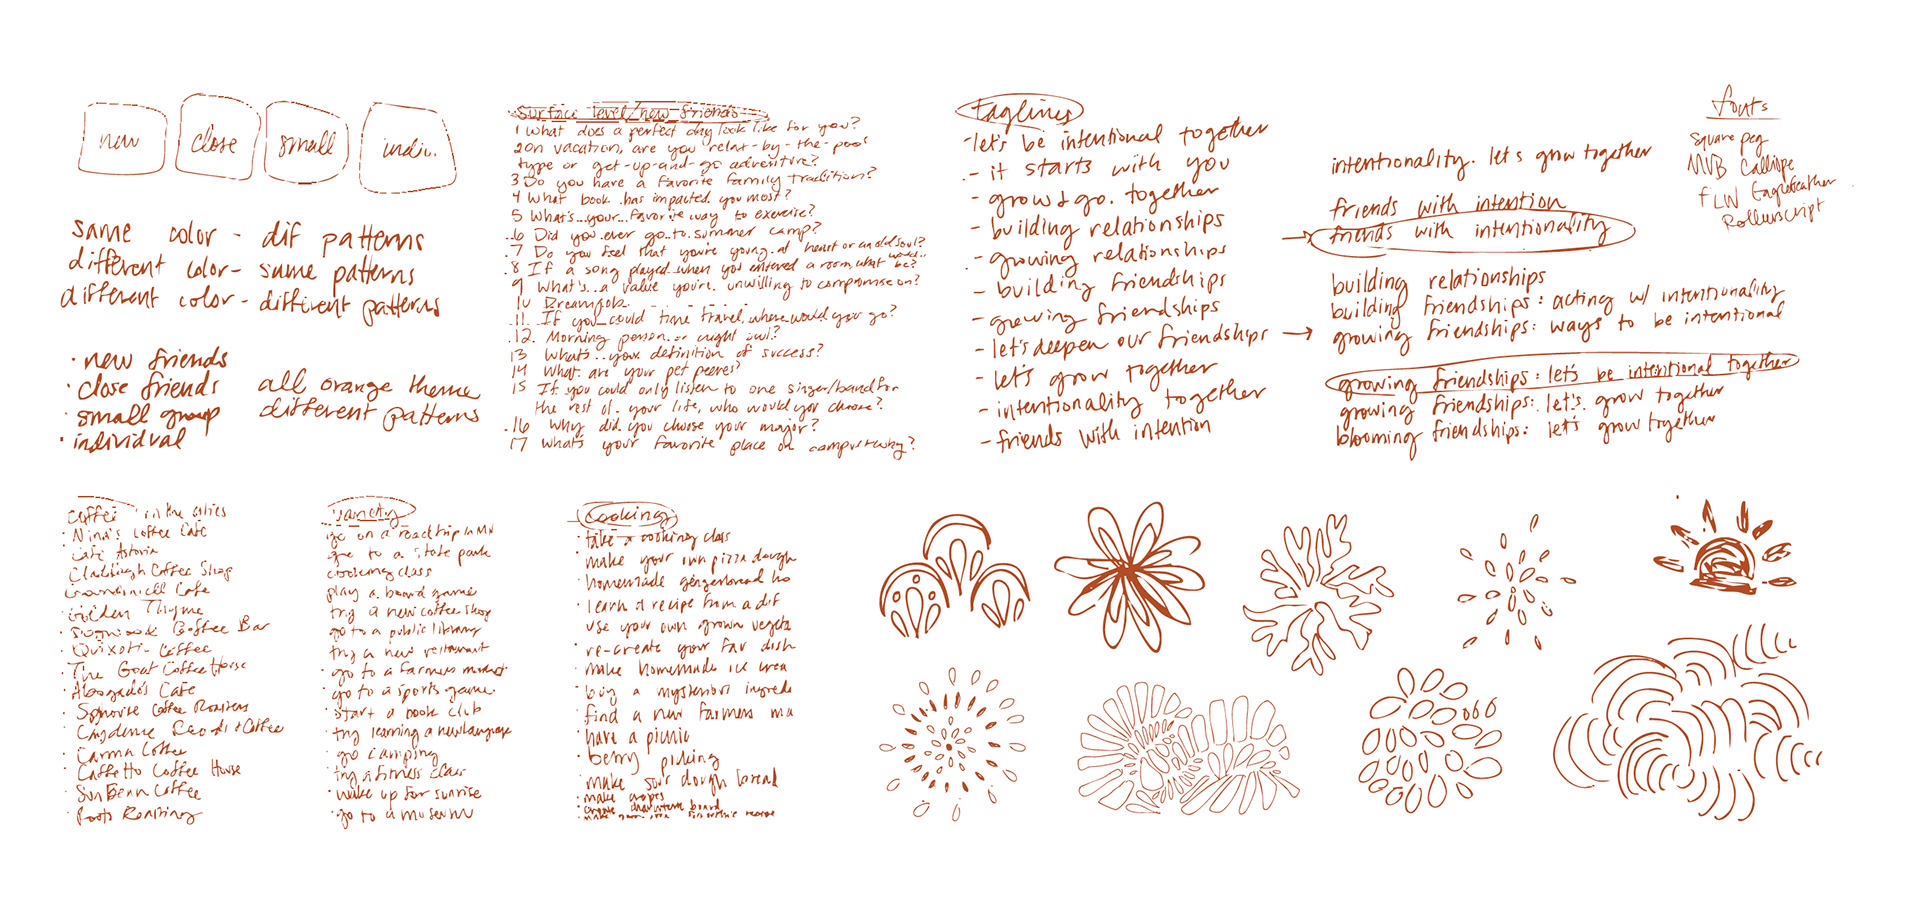 new
close
small
indiv.
same color - dif patterns
different color - same patterns
different color - different patterns
· new friends
· close friends
· small group
· individual
all orange theme
different patterns
surface level/new friends
1 What does a perfect day look like for you?
2 on vacation, are you relax-by-the-pool
type or get-up-and-go adventure?
3 Do you have a favorite family tradition?
4 What book has impacted you most?
5 What's your favorite way to exercise?
6 Did you ever go to summer camp?
7 Do you feel that you're young at heart or an old soul?
8 If a song played when you entered a room, what would be?
9 What's a value you're unwilling to compromise on?
10 Dream job
11. If you could time travel, where would you go?
12. Morning person or night owl?
13 What's your definition of success?
14 What are your pet peeves?
15 If you could only listen to one singer/band for
the rest of your life, who would you choose?
16 Why did you choose your major?
17 What's your favorite place on campus + why?
taglines
- let's be intentional together
- it starts with you
- grow & go. together
- building relationships
- growing relationships
- building friendships
- growing friendships
- let's deepen our friendships
- let's grow together
- intentionality together
- friends with intention
intentionality. let's grow together
friends with intention
friends with intentionality
building relationships
building friendships: acting w/ intentionality
growing friendships: ways to be intentional
growing friendships: let's be intentional together
growing friendships: let's grow together
blooming friendships: let's grow together
fonts
square peg
MVB Calliope
FLW Eaglefeather
Rollerscript
coffee in the cities
· Nina's Coffee Cafe
· Cafe Astoria
Claddagh Coffee Shop
Cafe
· Golden Thyme
· Coffee Bar
· Quixotic Coffee
· The Goat Coffee House
· Abogados Cafe
· Spyhouse Coffee Roasters
· Coffee
· Carma Coffee
· Caffetto Coffee House
· Sun Bean Coffee
· Roots Roasting
variety
go on a road trip in MN
go to a state park
cooking class
play a board game
try a new coffee shop
go to a public library
try a new restaurant
· go to a farmers market
· go to a sports game
· start a book club
· try learning a new language
· go camping
· try a fitness class
· wake up for sunrise
· go to a museum
cooking
· take a cooking class
· make your own pizza dough
· homemade gingerbread ho
· learn a recipe from a dif
use your own grown vegeta
· re-create your fav dish
· make homemade ice crea
· buy a mysterious ingredie
· find a new farmers ma
· have a picnic
· berry picking
· make sour dough bread
· make crepes
· create charcuterie board